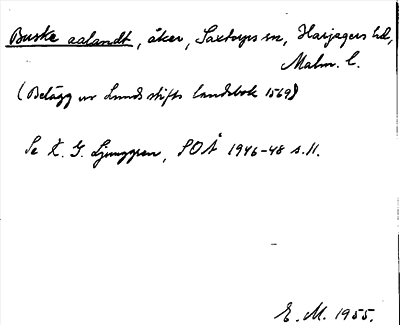 Buske aalandt, åker, Saxtorps sn, Harjagers hd,
Malm. l.
(Belägg ur Lunds stifts landebok 1569)
Se K. G. Ljunggren, SOÅ 1946-48 s. 11.
E. M. 1955.